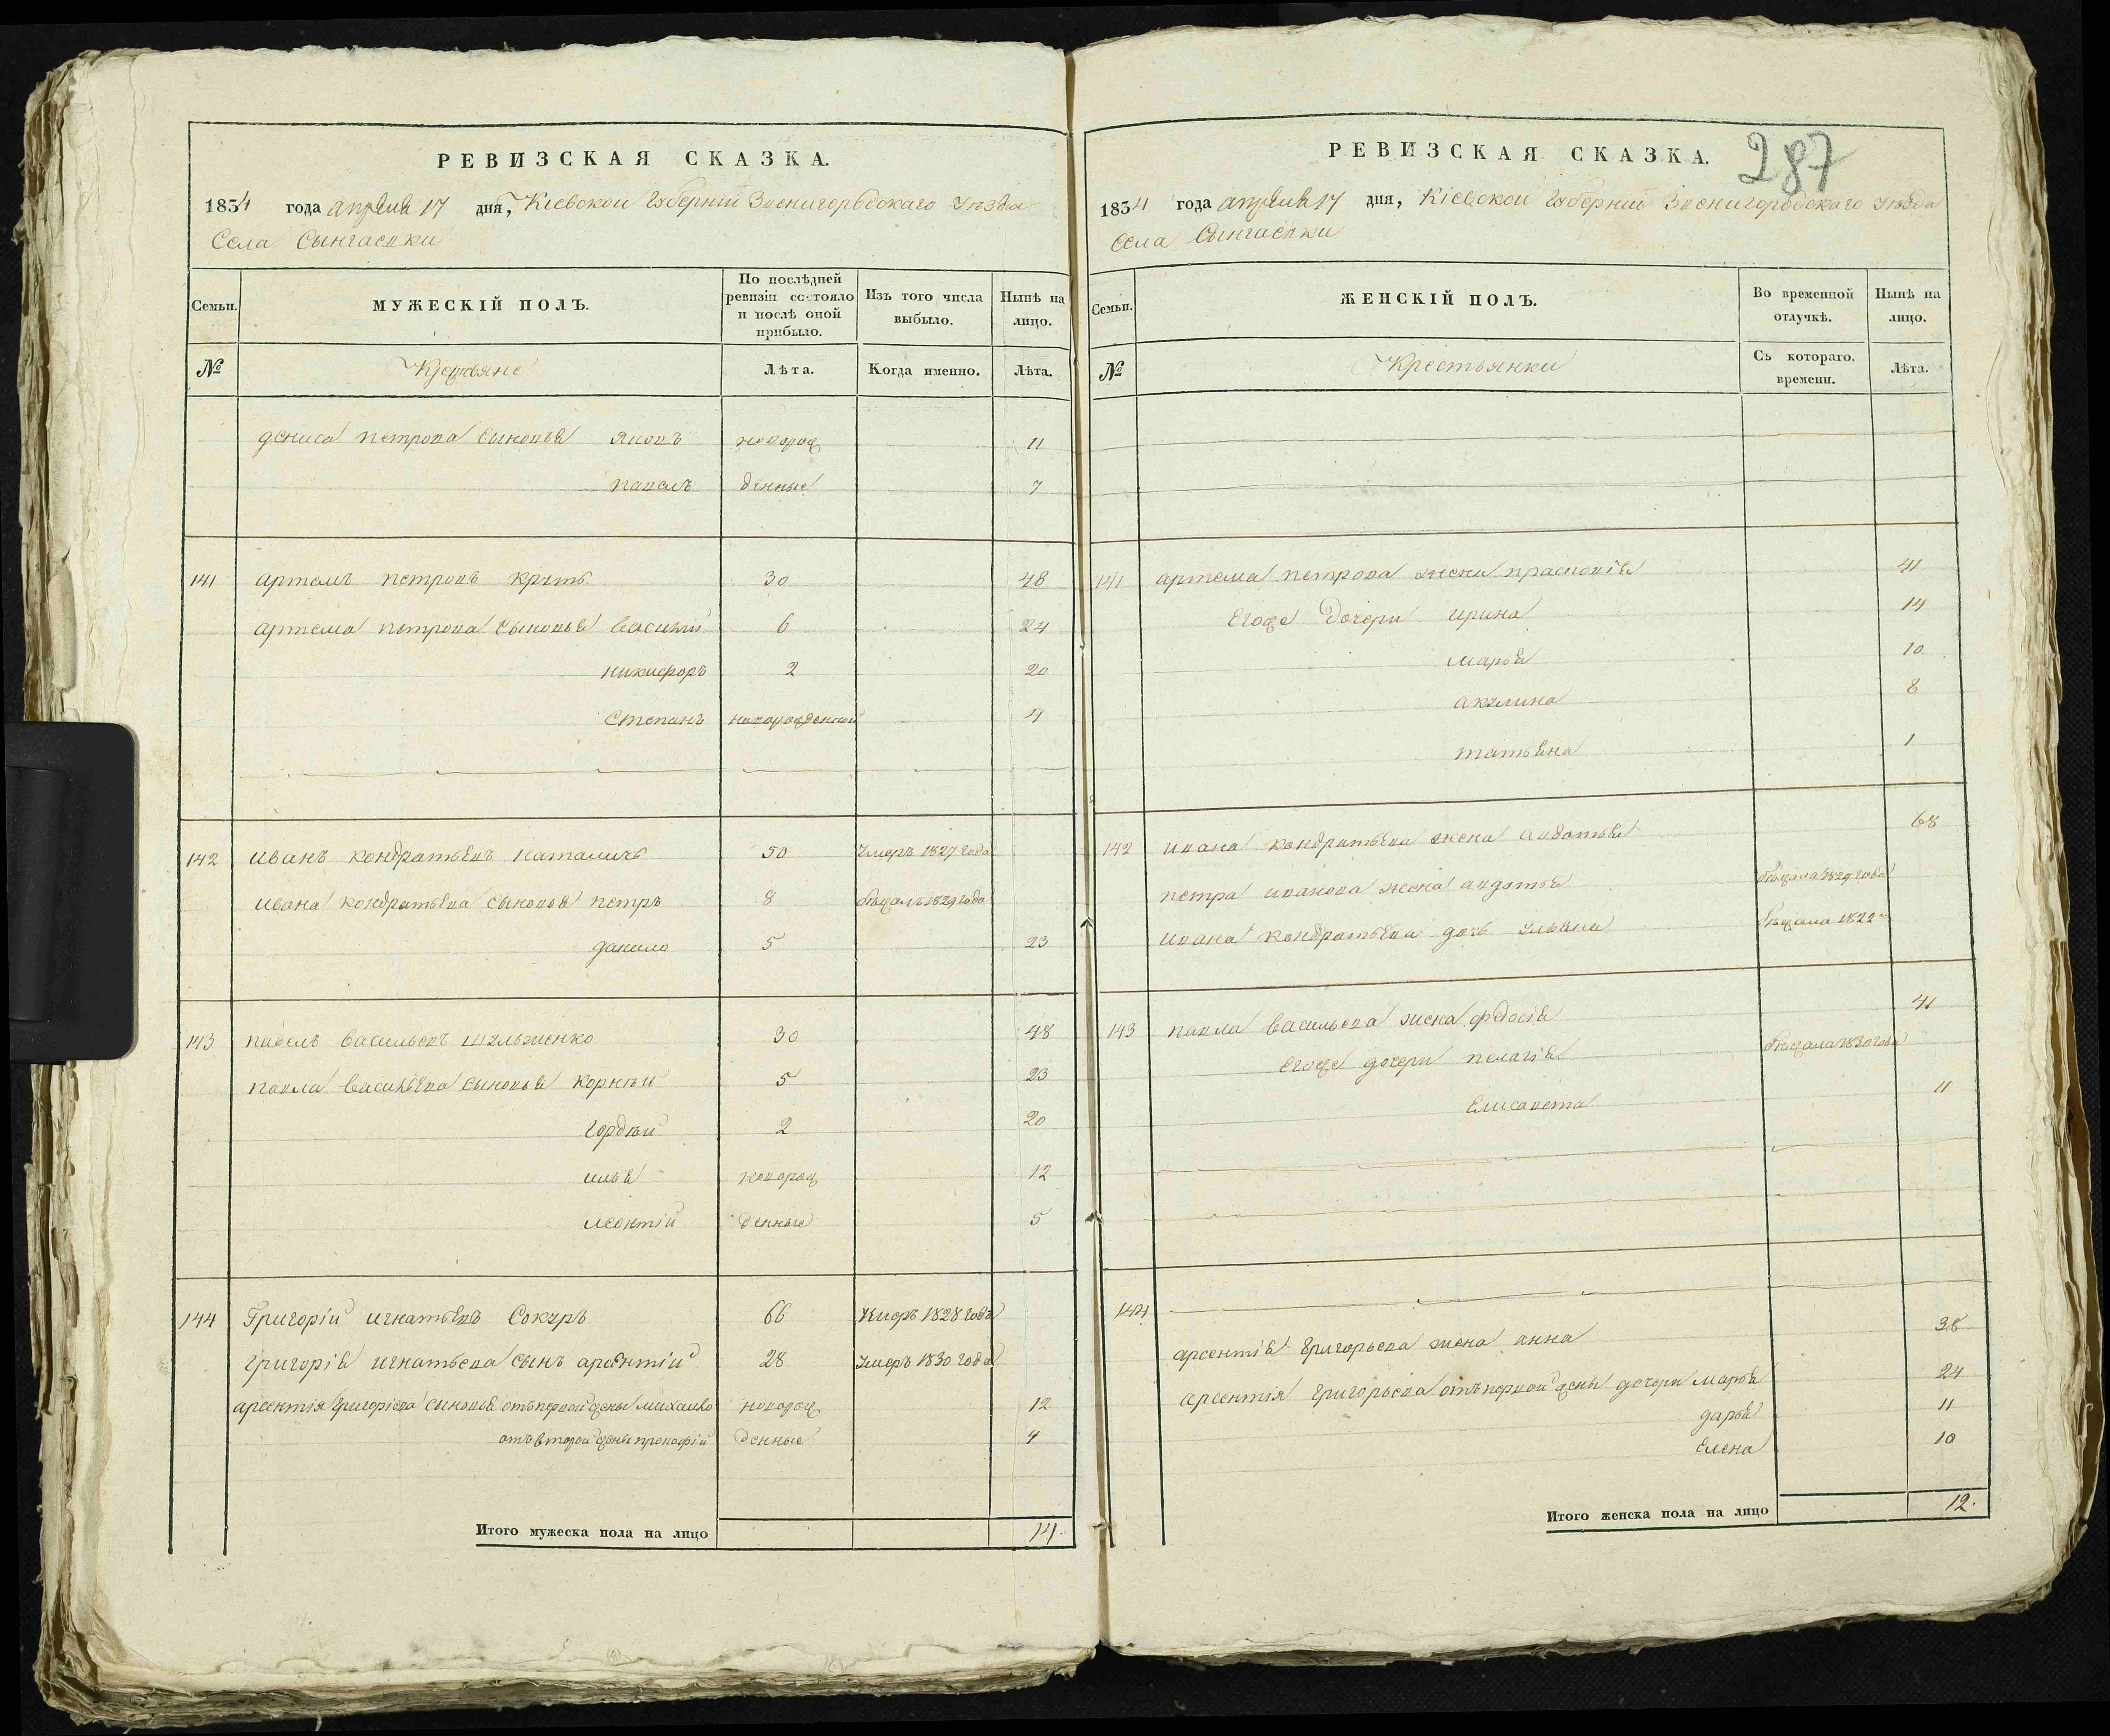 РЕВИЗСКАЯ СКАЗКА.
1834 года апреля 17 дня, Кіевской Губерніи Звенигородскаго Уезда
Села
Семьи. МУЖЕСКІЙ ПОЛЪ. По послѣдней ревизіи состояло и послѣ оной прибыло. Изъ того числа выбыло. Нынѣ на лицо.
№ Крестьяне Лѣта. Когда именно. Лѣта.
Дениса Петрова сыновья Яковъ новорож 11
Павелъ денные 7
141 Артемъ Петровъ 30 48
Артема Петрова сыновья Василій 6 24
Никифоръ 2 20
Степанъ новорожденной 4
142 Иванъ Кондратьевъ 50 Умеръ 1827 года
Ивана Кондратьева сыновья Петръ 8 Бежалъ 1829 года
Данило 5 23
143 Павелъ Васильевъ Шульженко 30 48
Павла Васильева сыновья Корнѣй 5 23
Гордѣй 2 20
Илья новорож 12
Леонтій денные 5
144 Григорій Игнатьевъ Сокуръ 66 Умеръ 1828 года
Григорія Игнатьева сынъ Арсентій 28 Умеръ 1830 года
Арсентія Григорьева сыновья отъ первой жены Михайло новорож 12
отъ второй жены Прокофій денные 4
Итого мужеска пола на лицо 14.
287
РЕВИЗСКАЯ СКАЗКА.
1834 года апреля 17 дня, Кіевской Губерніи Звенигородскаго Уѣзда
Села
Семьи. ЖЕНСКІЙ ПОЛЪ. Во временной отлучкѣ. Нынѣ на лицо.
№ Крестьянки Съ котораго. времени. Лѣта.
141 Артема Петрова жена Прасковія 41
Егоже дочери Ирина 14
Марья 10
Акулина 8
Татьяна 1
142 Ивана Кондратьева жена Авдотья 68
Петра Иванова жена Авдотья Бежала 1829 года
Ивана Кондратьева дочь Ульяна Бежала 1822
143 Павла Васильева жена Федосія 41
Егоже дочери Пелагія Бежала 1830 года
Елисавета 11
144
Арсентія Григорьева жена Анна 38
Арсентія Григорьева отъ первой жены дочери Марья 24
Дарья 11
Елена 10
Итого женска пола на лицо 12.